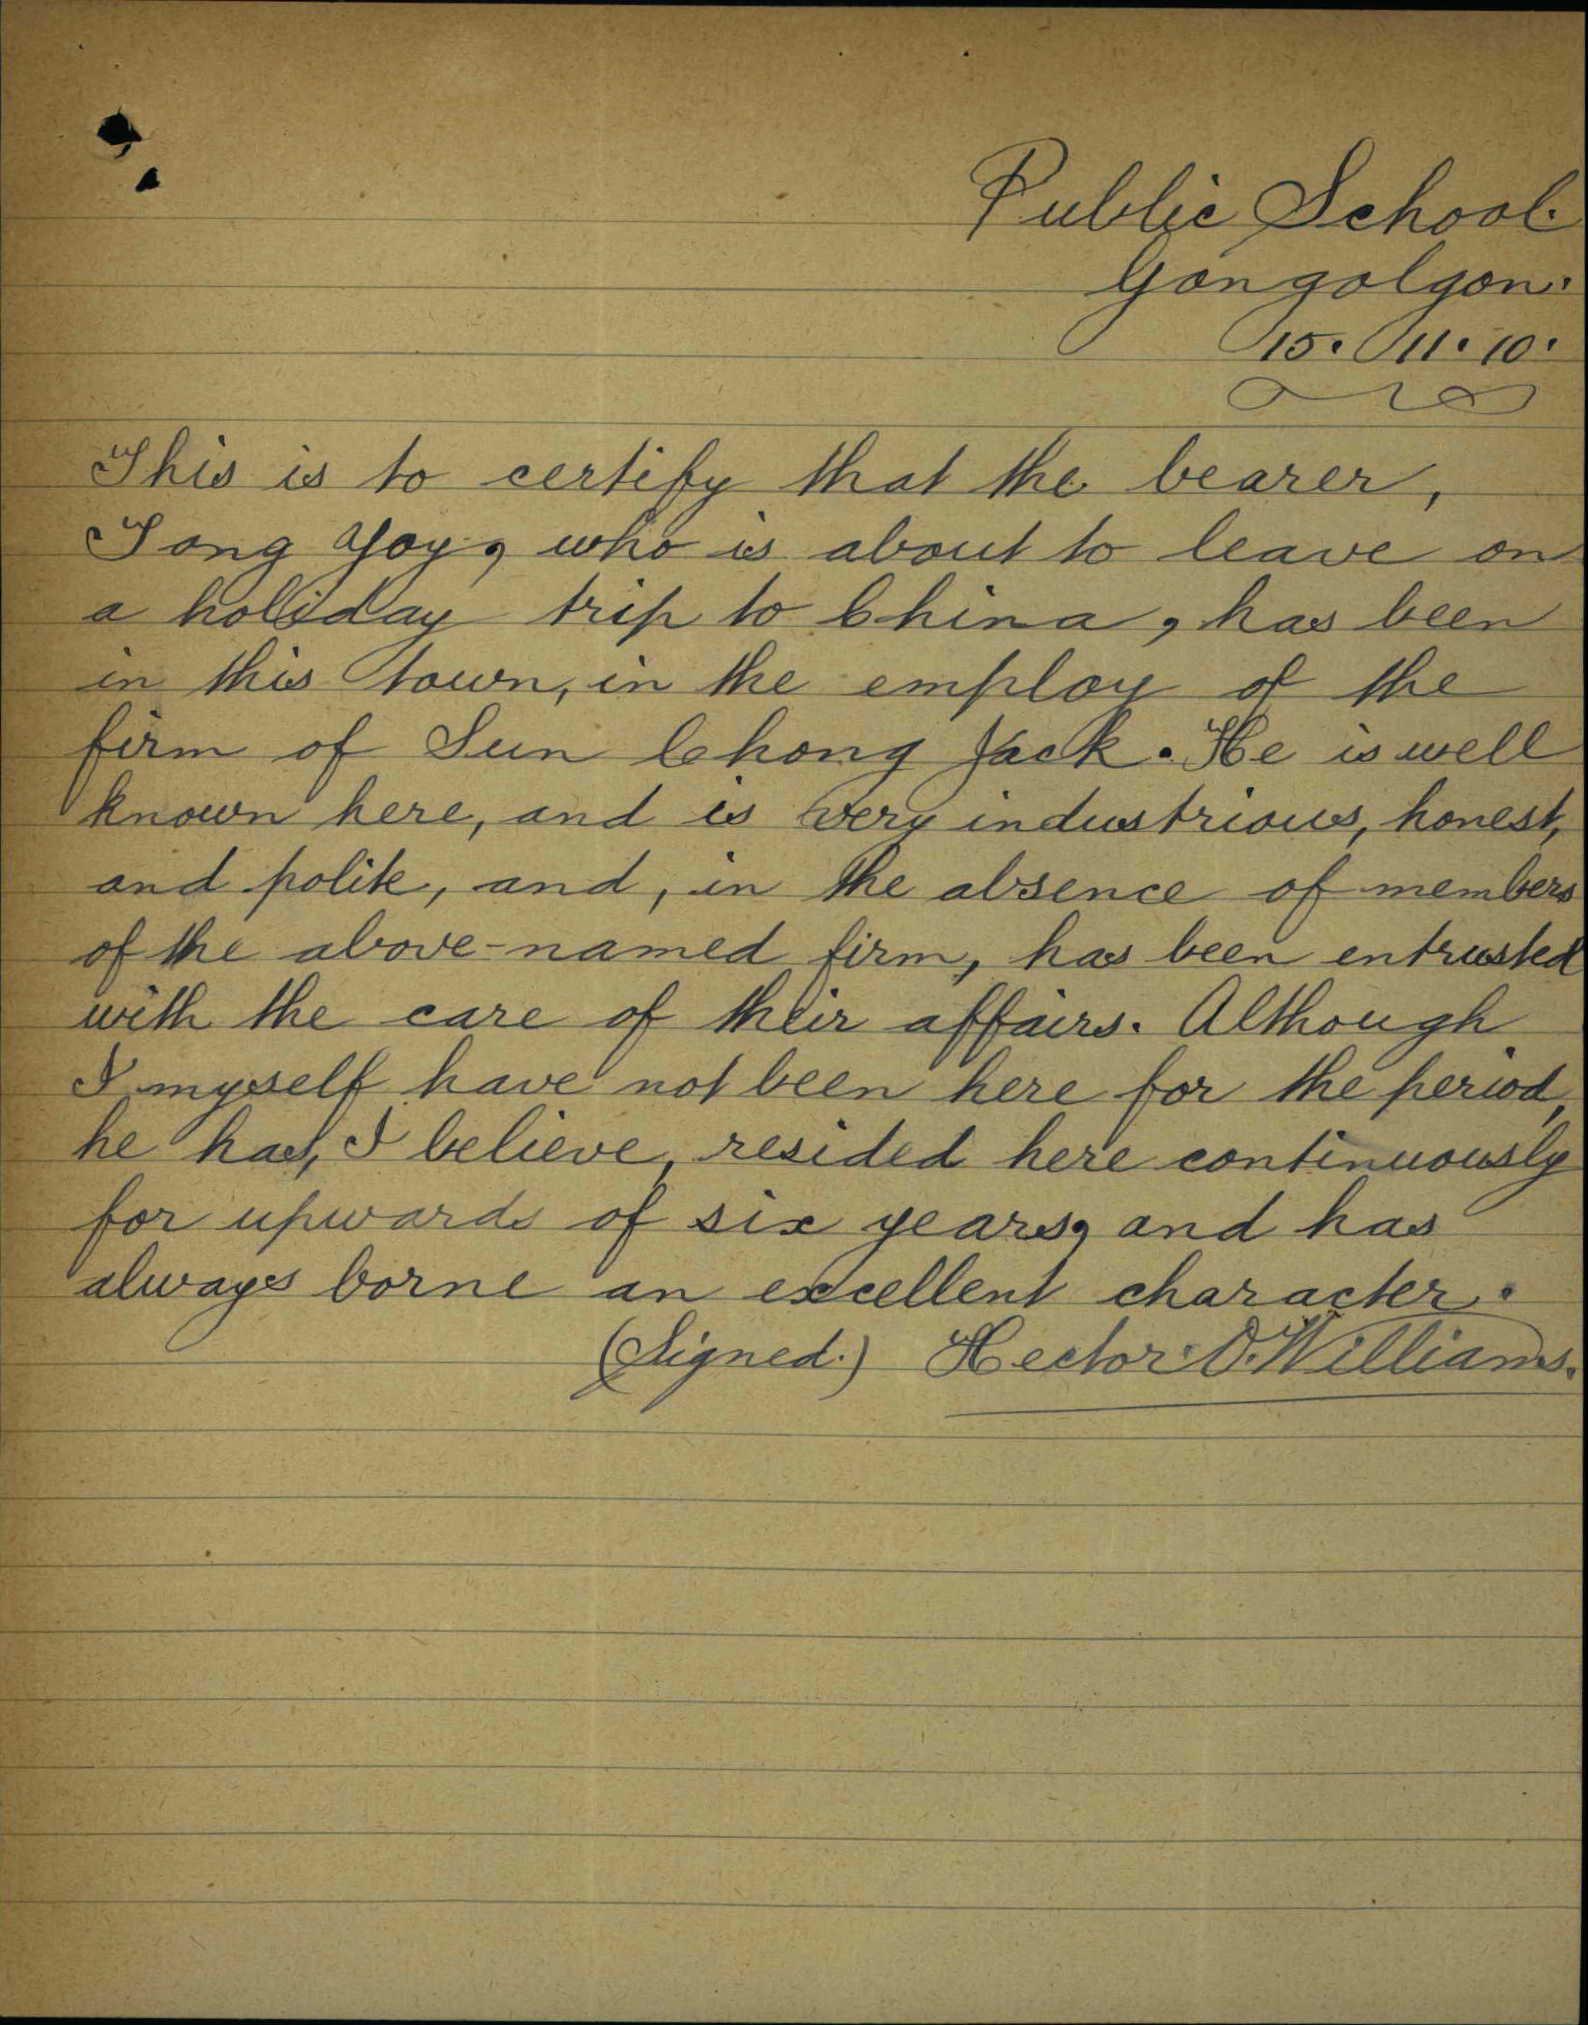 Public School.
Gongolgon.
15. 11. 10.
This is to certify that the bearer,
Tong Yoy, who is about to leave on
a holiday trip to China, has been
in this town, in the employ of the
firm of Sun Chong Jack. He is well
known here, and is very industrious, honest,
and polite, and, in the absence of members
of the above-named firm, has been entrusted
with the care of their affairs. Although
I myself have not been here for the period,
he has, I believe, resided here continuously
for upwards of six years, and has
always borne an excellent character.
(Signed.) Hector O. Williams.